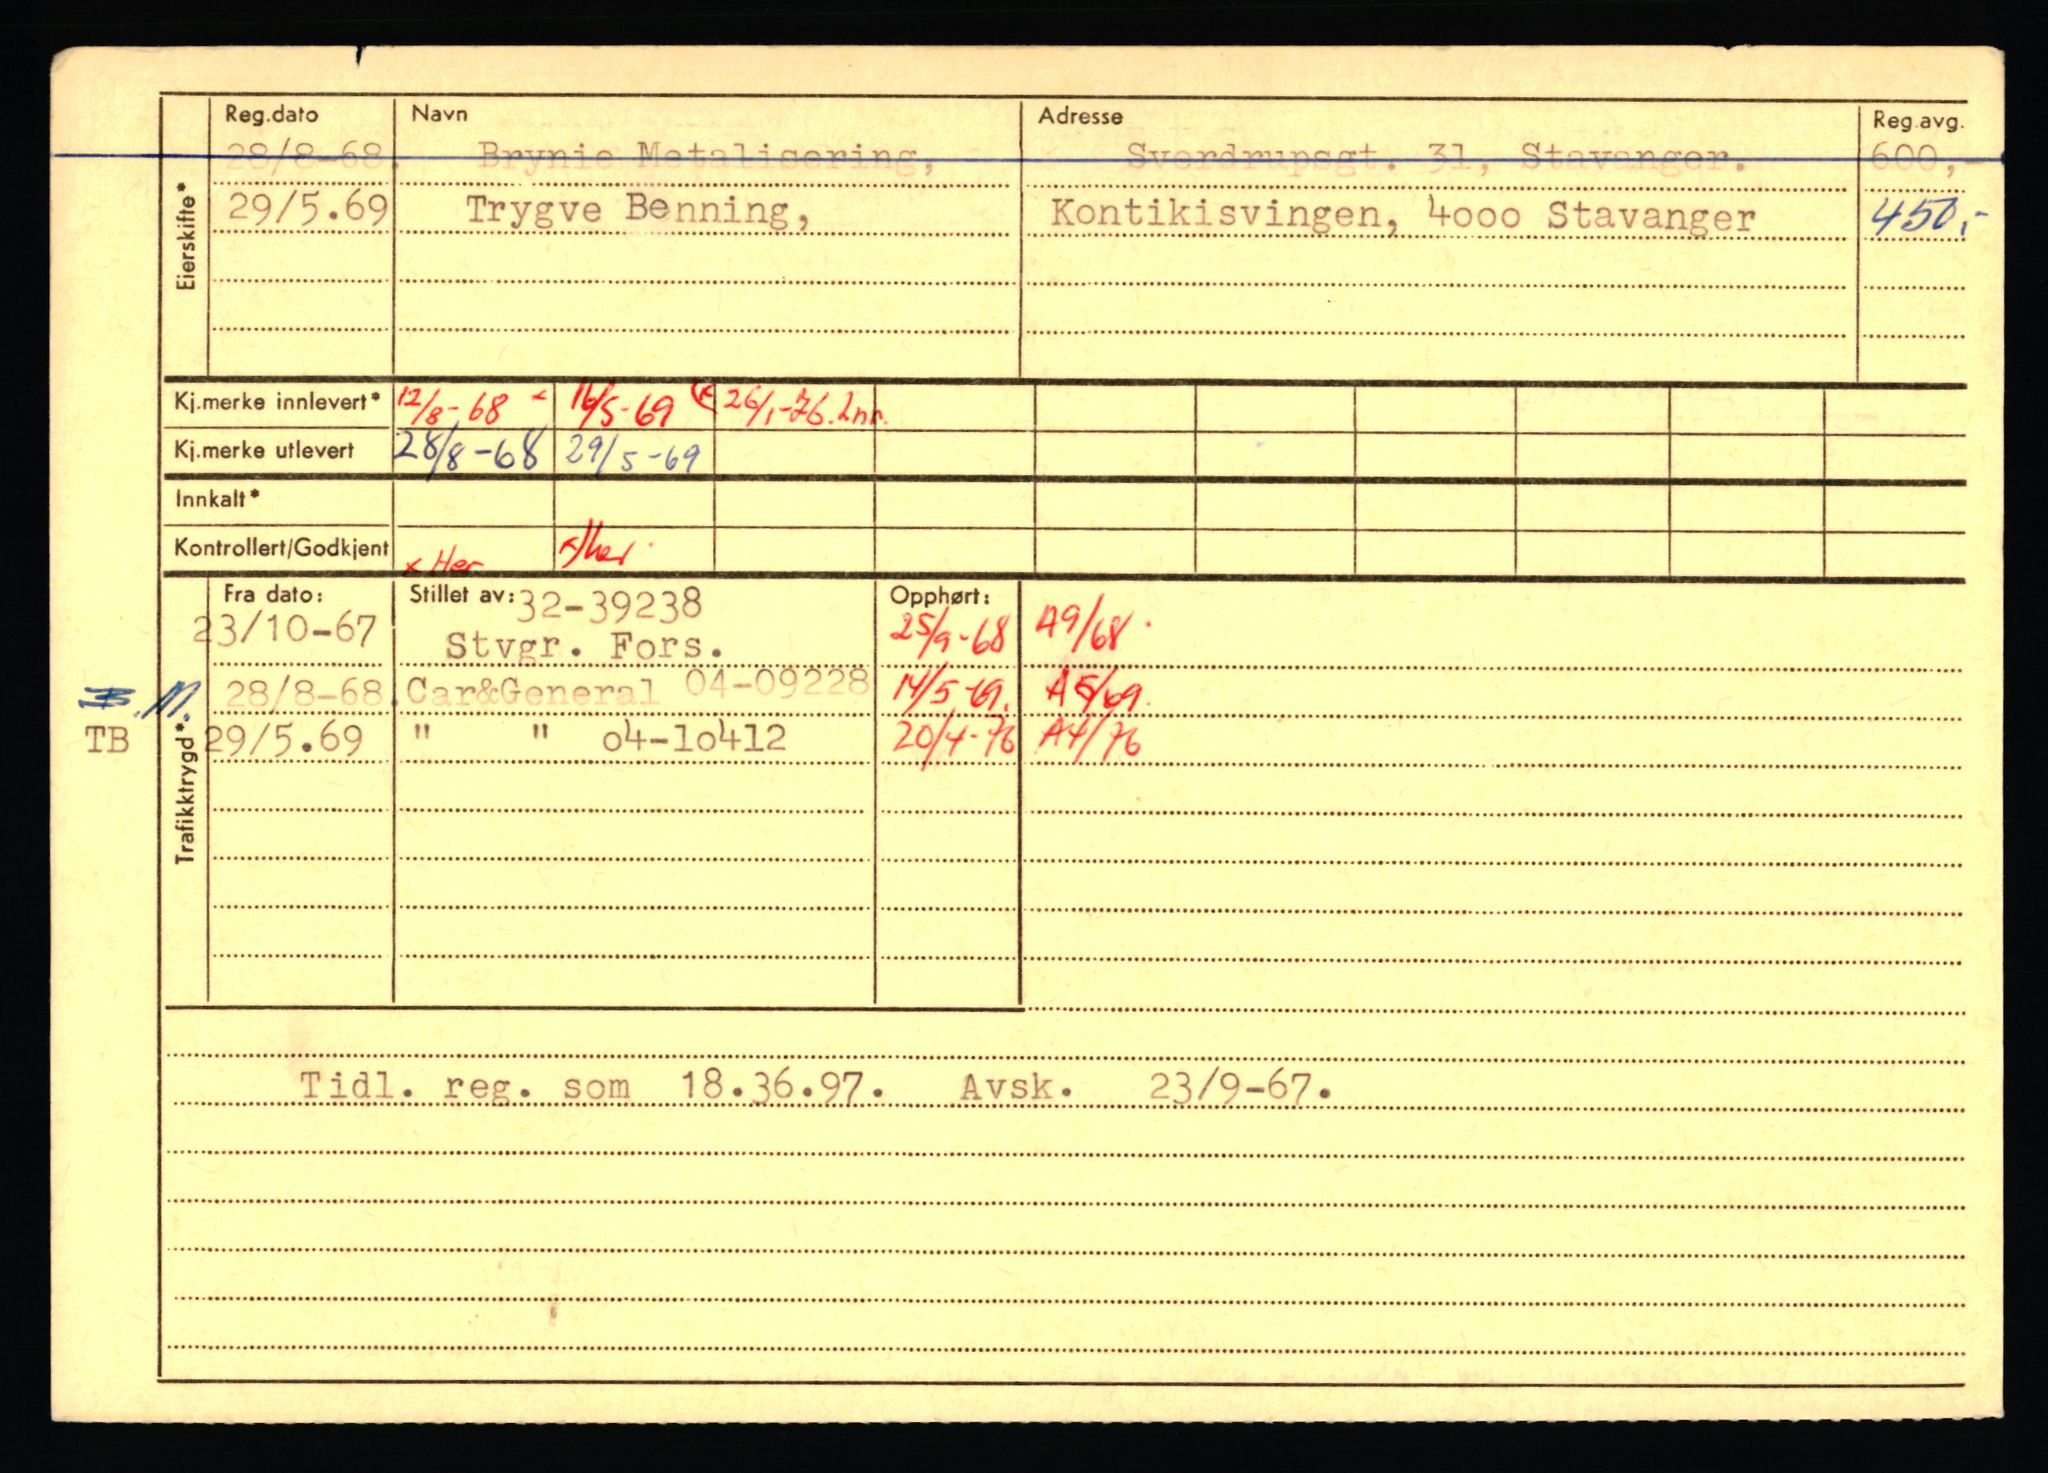 Reg.dato Navn Adresse Reg.avg.
28/8-68. Brynie Metalisering, Sverdrupsgt. 31, Stavanger. 600,-
29/5.69 Trygve Benning, Kontikisvingen, 4000 Stavanger 450,-
Eierskifte*
Kj.merke innlevert* 12/8-68 x 16/5-69 26/1-76. 2nr.
Kj.merke utlevert 28/8-68 29/5-69
Innkalt*
Kontrollert/Godkjent x Her x/her
Fra dato: Stillet av: 32-39238 Opphørt:
23/10-67 Stvgr. Fors. 25/9-68 A9/68
28/8-68. Car&General 04-09228 14/5-69. A5/69.
TB 29/5.69 " " o4-1o412 20/4-76 A4/76
Trafikktrygd*
Tidl. reg. som 18.36.97. Avsk. 23/9-67.